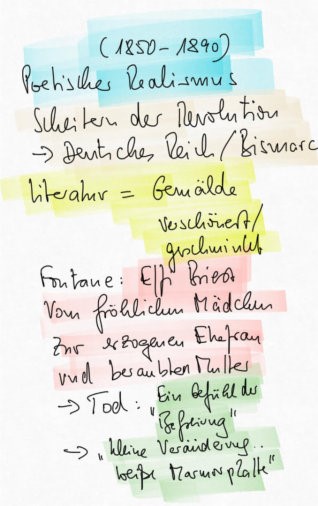 (1850-1890)
Poetischer Realismus
Scheitern der Revolution
→ Deutsches Reich/Bismarc
Literatur = Gemälde
verschönert/
geschminkt
Fontane: Effi Briest
Vom fröhlichen Mädchen
zur erzogenen Ehefrau
und beraubten Mutter
→ Tod: "Ein Gefühl der
Befreiung"
→ "kleine Veränderung..
weiße Marmorplatte"